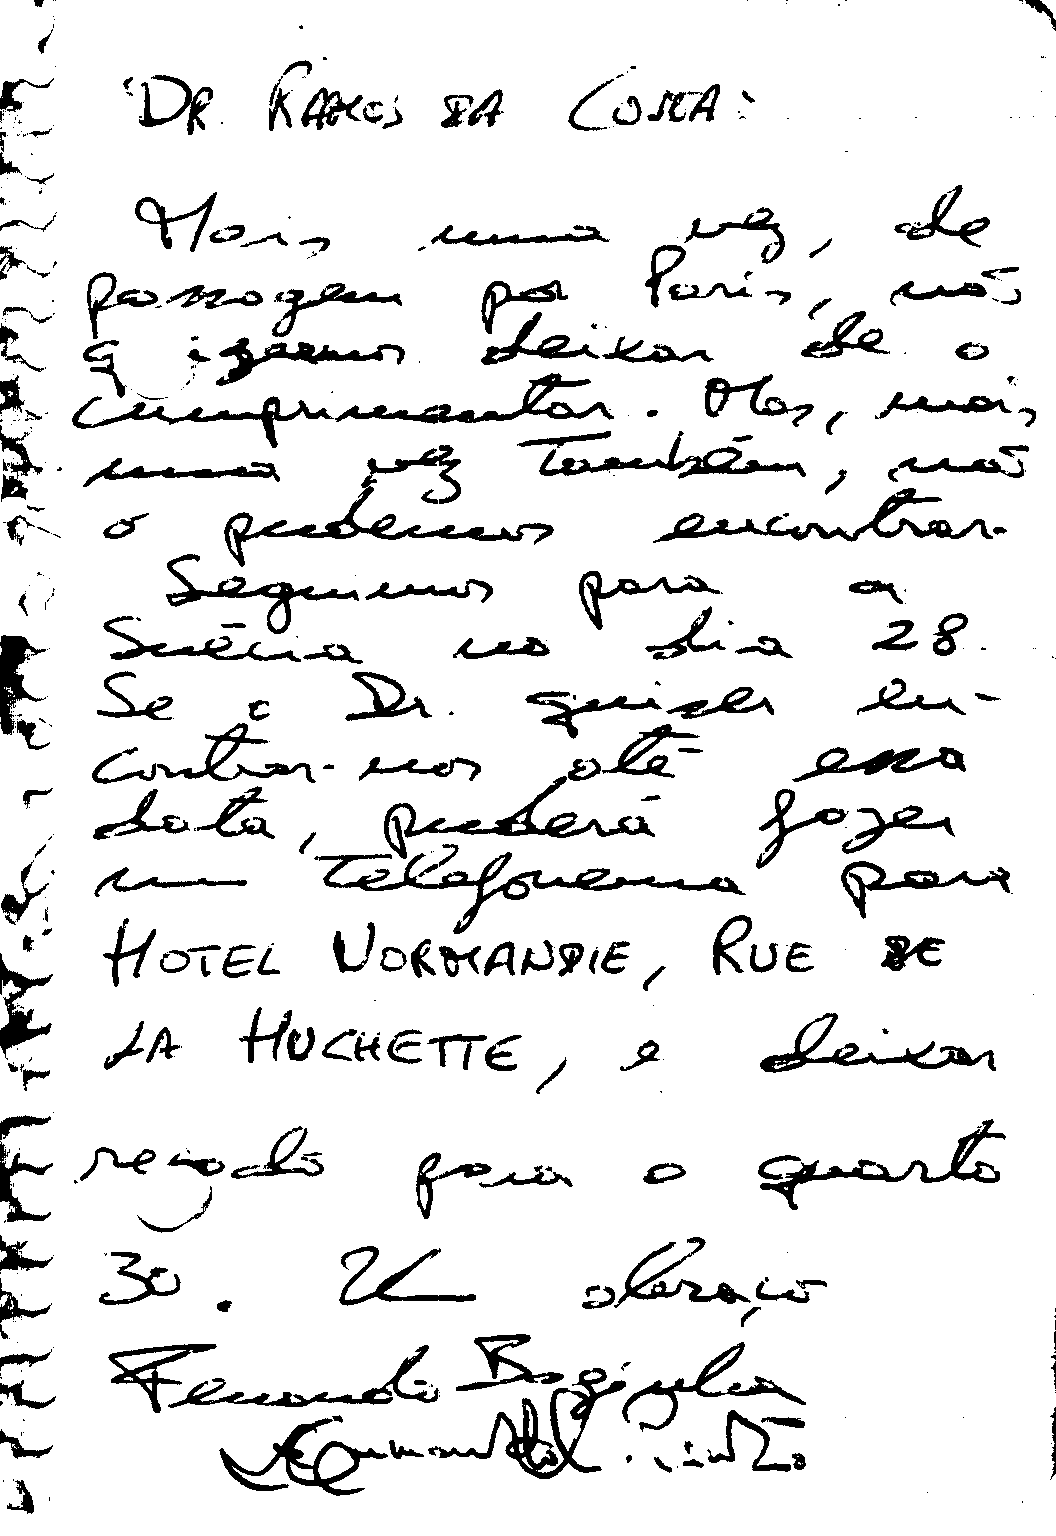 DR RAMOS DA COSTA:
Mais uma vez, de
passagem por Paris, não
quizemos deixar de o
cumprimentar. Mas, mais
uma vez também, não
o pudemos encontrar.
Seguimos para a
Suécia no dia 28.
Se o Dr. quiser en-
contrar-nos até essa
data, puderá fazer
um telefonema para
HOTEL NORMANDIE, RUE DE
LA HUCHETTE, e deixar
recado para o quarto
30. Um abraço
Fernando